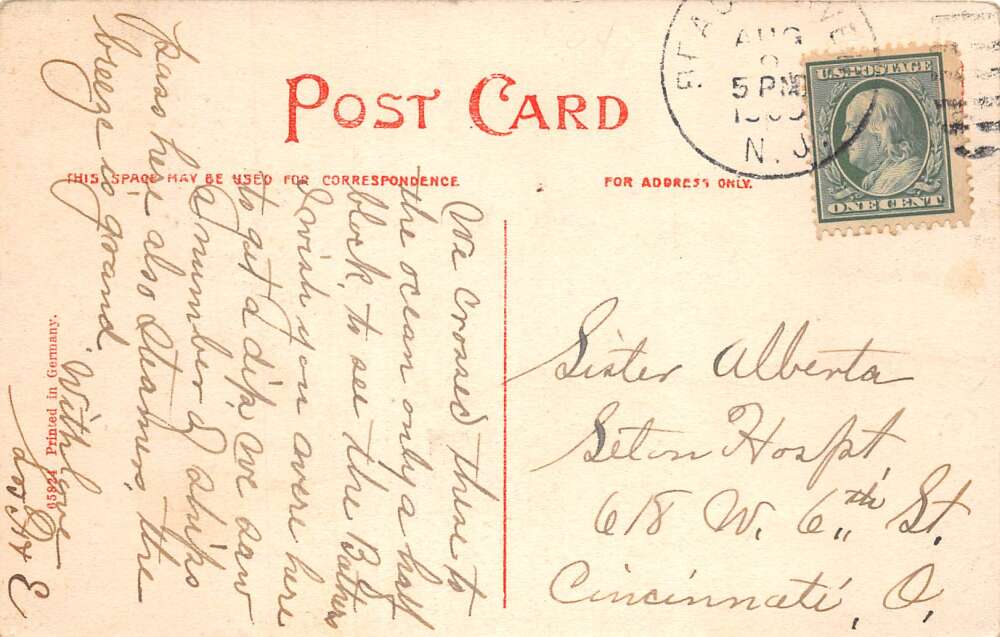 POST CARD
THIS SPACE MAY BE USED FOR CORRESPONDENCE
FOR ADDRESS ONLY.
AUG
5 PM
N. J.
U.S. POSTAGE
ONE CENT
We crossed these to
the ocean only a half
block, to see the Bathers
I wish you were here
to get a dip, we saw
a number of ships
pass here also steamers, the
breeze is grand.
With love
Sister Alberta
Seton Hospt,
618 W. 6th St.
Cincinnati, O,
65824 Printed in Germany.